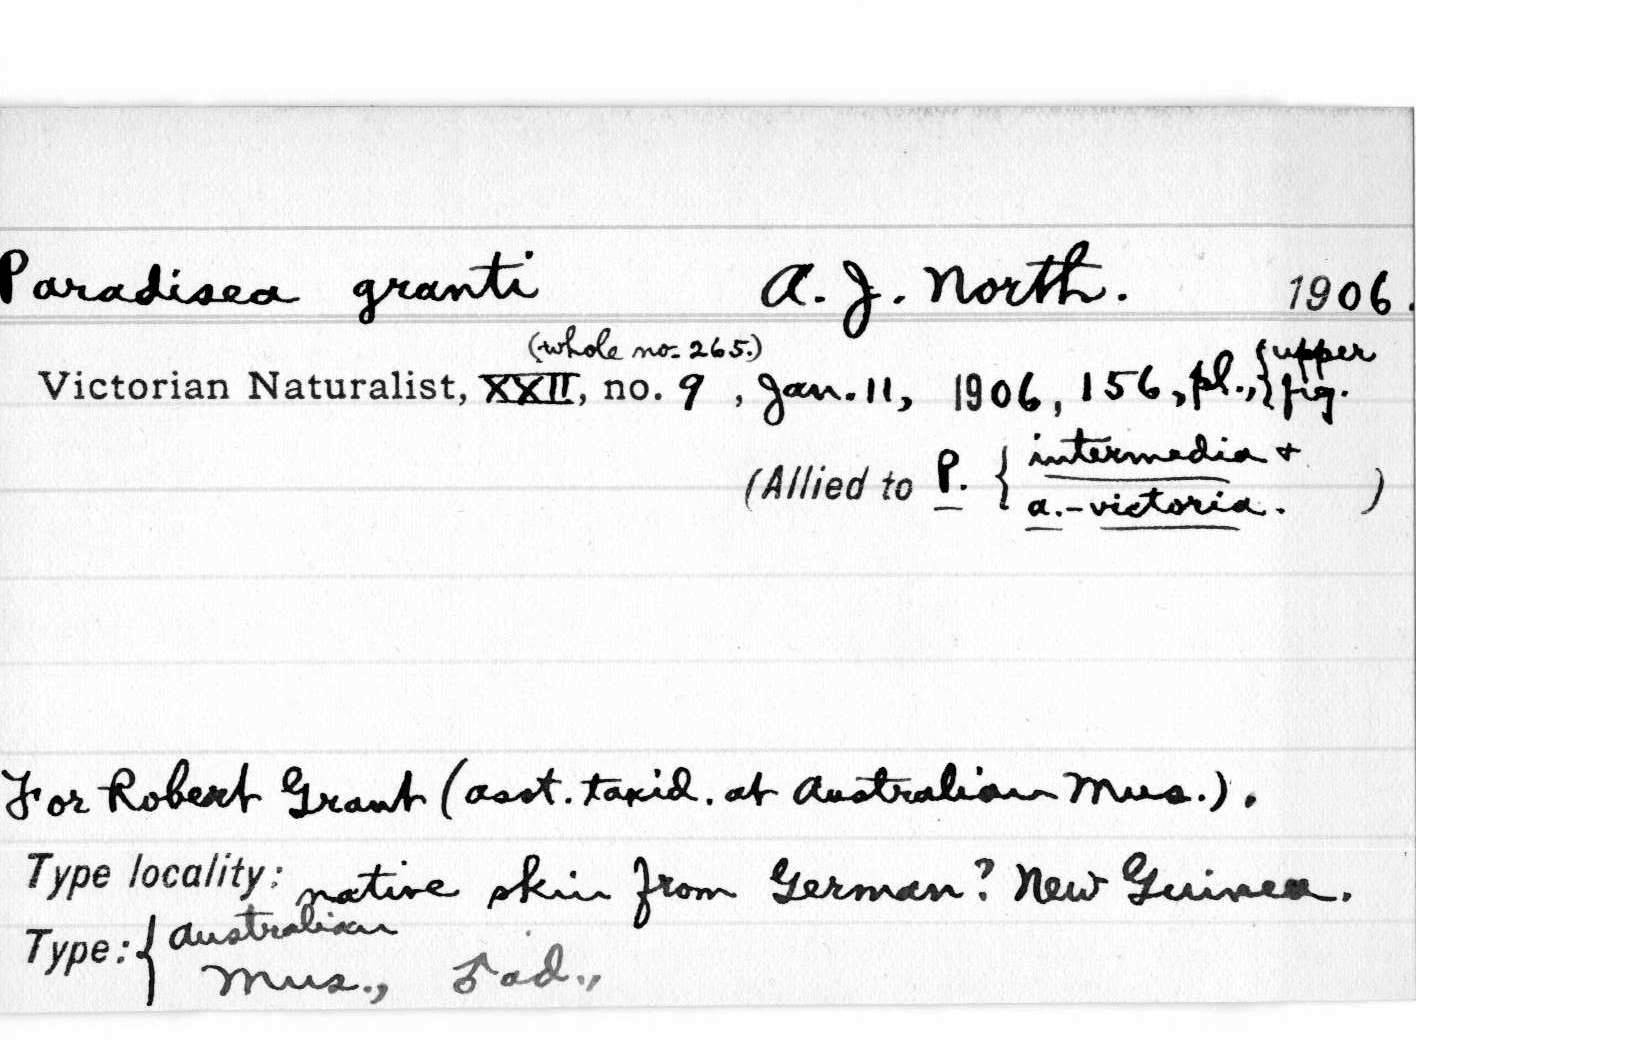 Paradisea granti A. J. North. 1906.
(whole no. 265.)
Victorian Naturalist, XXII, no. 9, Jan. 11, 1906, 156, pl., { upper fig.
(Allied to P. { intermedia +
a.-victoria. )
For Robert Grant (asst. taxid. at Australian Mus.).
Type locality: native skin from German? New Guinea.
Type: { Australian
Mus., ad.,